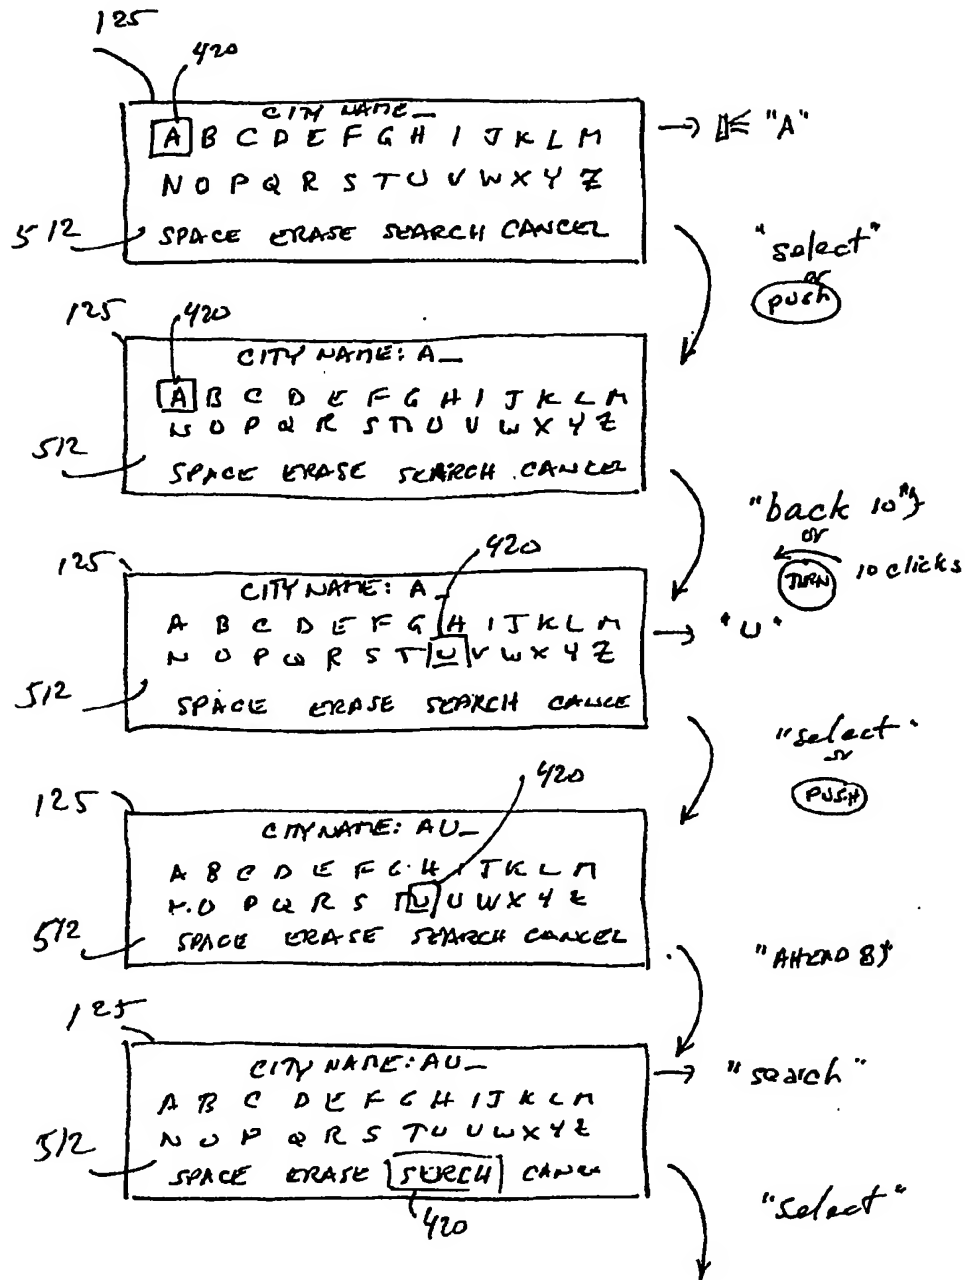 125
420
CITY NAME_
A B C D E F G H I J K L M → "A"
N O P Q R S T U V W X Y Z
512 SPACE ERASE SEARCH CANCEL
"select"
or
PUSH
125 420
CITY NAME: A_
A B C D E F G H I J K L M
N O P Q R S T U V W X Y Z
512
SPACE ERASE SEARCH CANCEL
"back 10"
or
TURN 10 clicks
125 420
CITY NAME: A_
A B C D E F G H I J K L M
N O P Q R S T U V W X Y Z → "U"
512
SPACE ERASE SEARCH CANCE
"select"
or
PUSH
125 420
CITY NAME: AU_
A B C D E F G H I J K L M
N O P Q R S T U V W X Y Z
512 SPACE ERASE SEARCH CANCEL
"AHEAD 8"
125
CITY NAME: AU_ → "search"
A B C D E F G H I J K L M
N O P Q R S T U V W X Y Z
512 SPACE ERASE SEARCH CANCEL
420
"select"